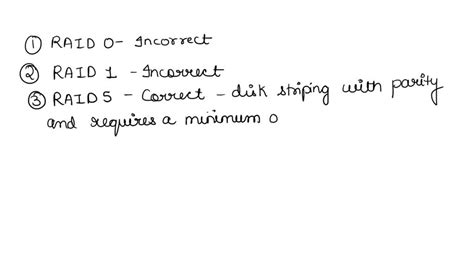 ① RAID 0- Incorrect
② RAID 1 - Incorrect
③ RAID 5 - Correct - disk striping with parity
and requires a minimum o